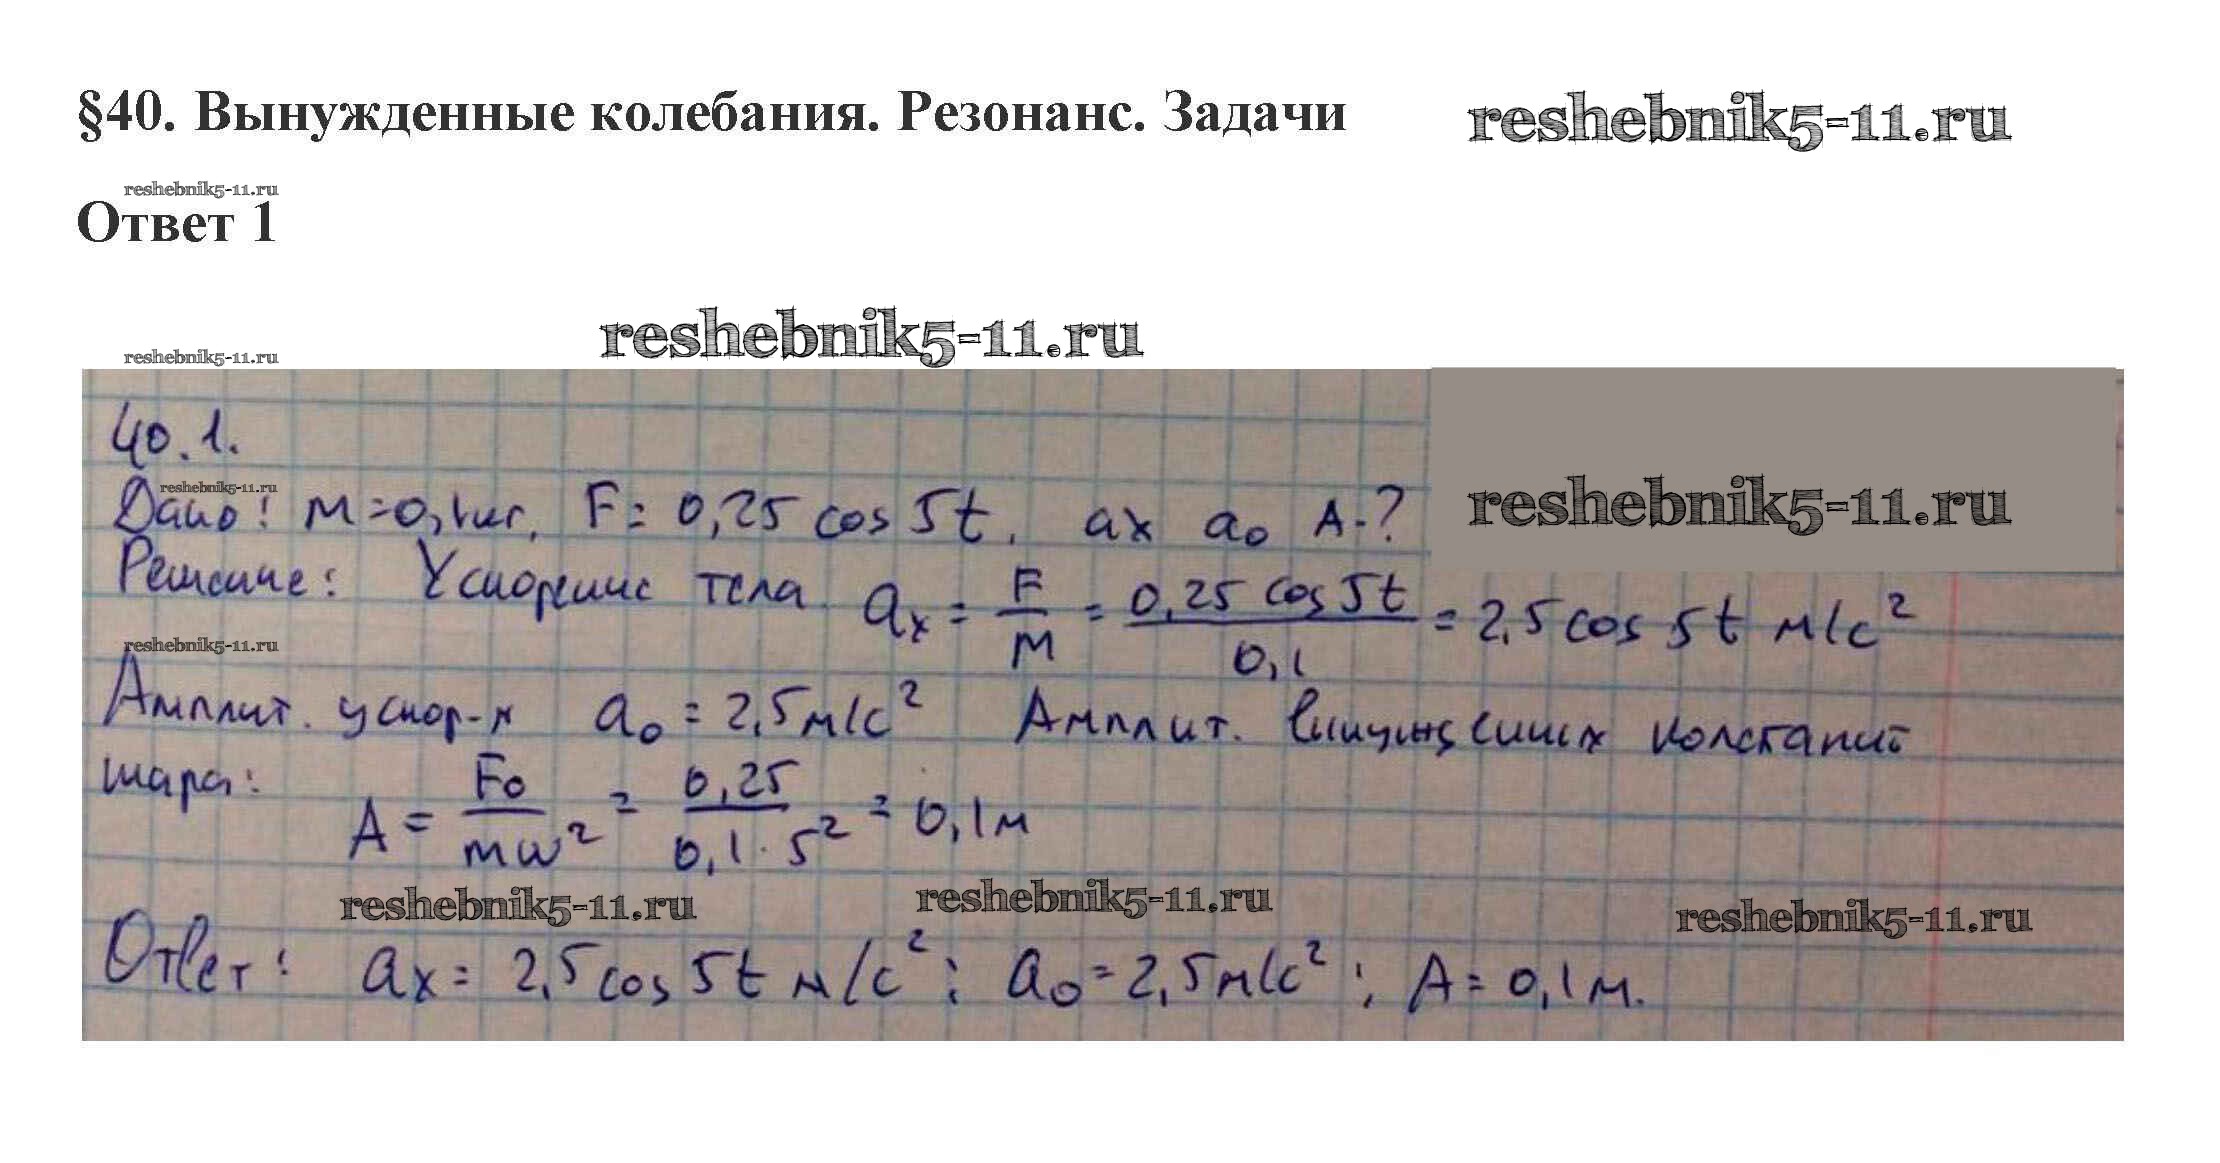 §40. Вынужденные колебания. Резонанс. Задачи
reshebnik5-11.ru
reshebnik5-11.ru
Ответ 1
reshebnik5-11.ru
reshebnik5-11.ru
40.1.
reshebnik5-11.ru
Дано: m=0,1кг, F= 0,25 cos 5t, ax a₀ A-?
reshebnik5-11.ru
Решение: Ускорение тела aₓ = F/m = 0,25 cos 5t / 0,1 = 2,5 cos 5t м/с²
reshebnik5-11.ru
Амплит. ускор-я a₀ = 2,5 м/с² Амплит. вынужденных колебаний
шара:
A = F₀/mω² = 0,25/0,1·5² = 0,1м
reshebnik5-11.ru
reshebnik5-11.ru
reshebnik5-11.ru
Ответ: aₓ = 2,5 cos 5t м/с²; a₀ = 2,5 м/с²; A = 0,1 м.